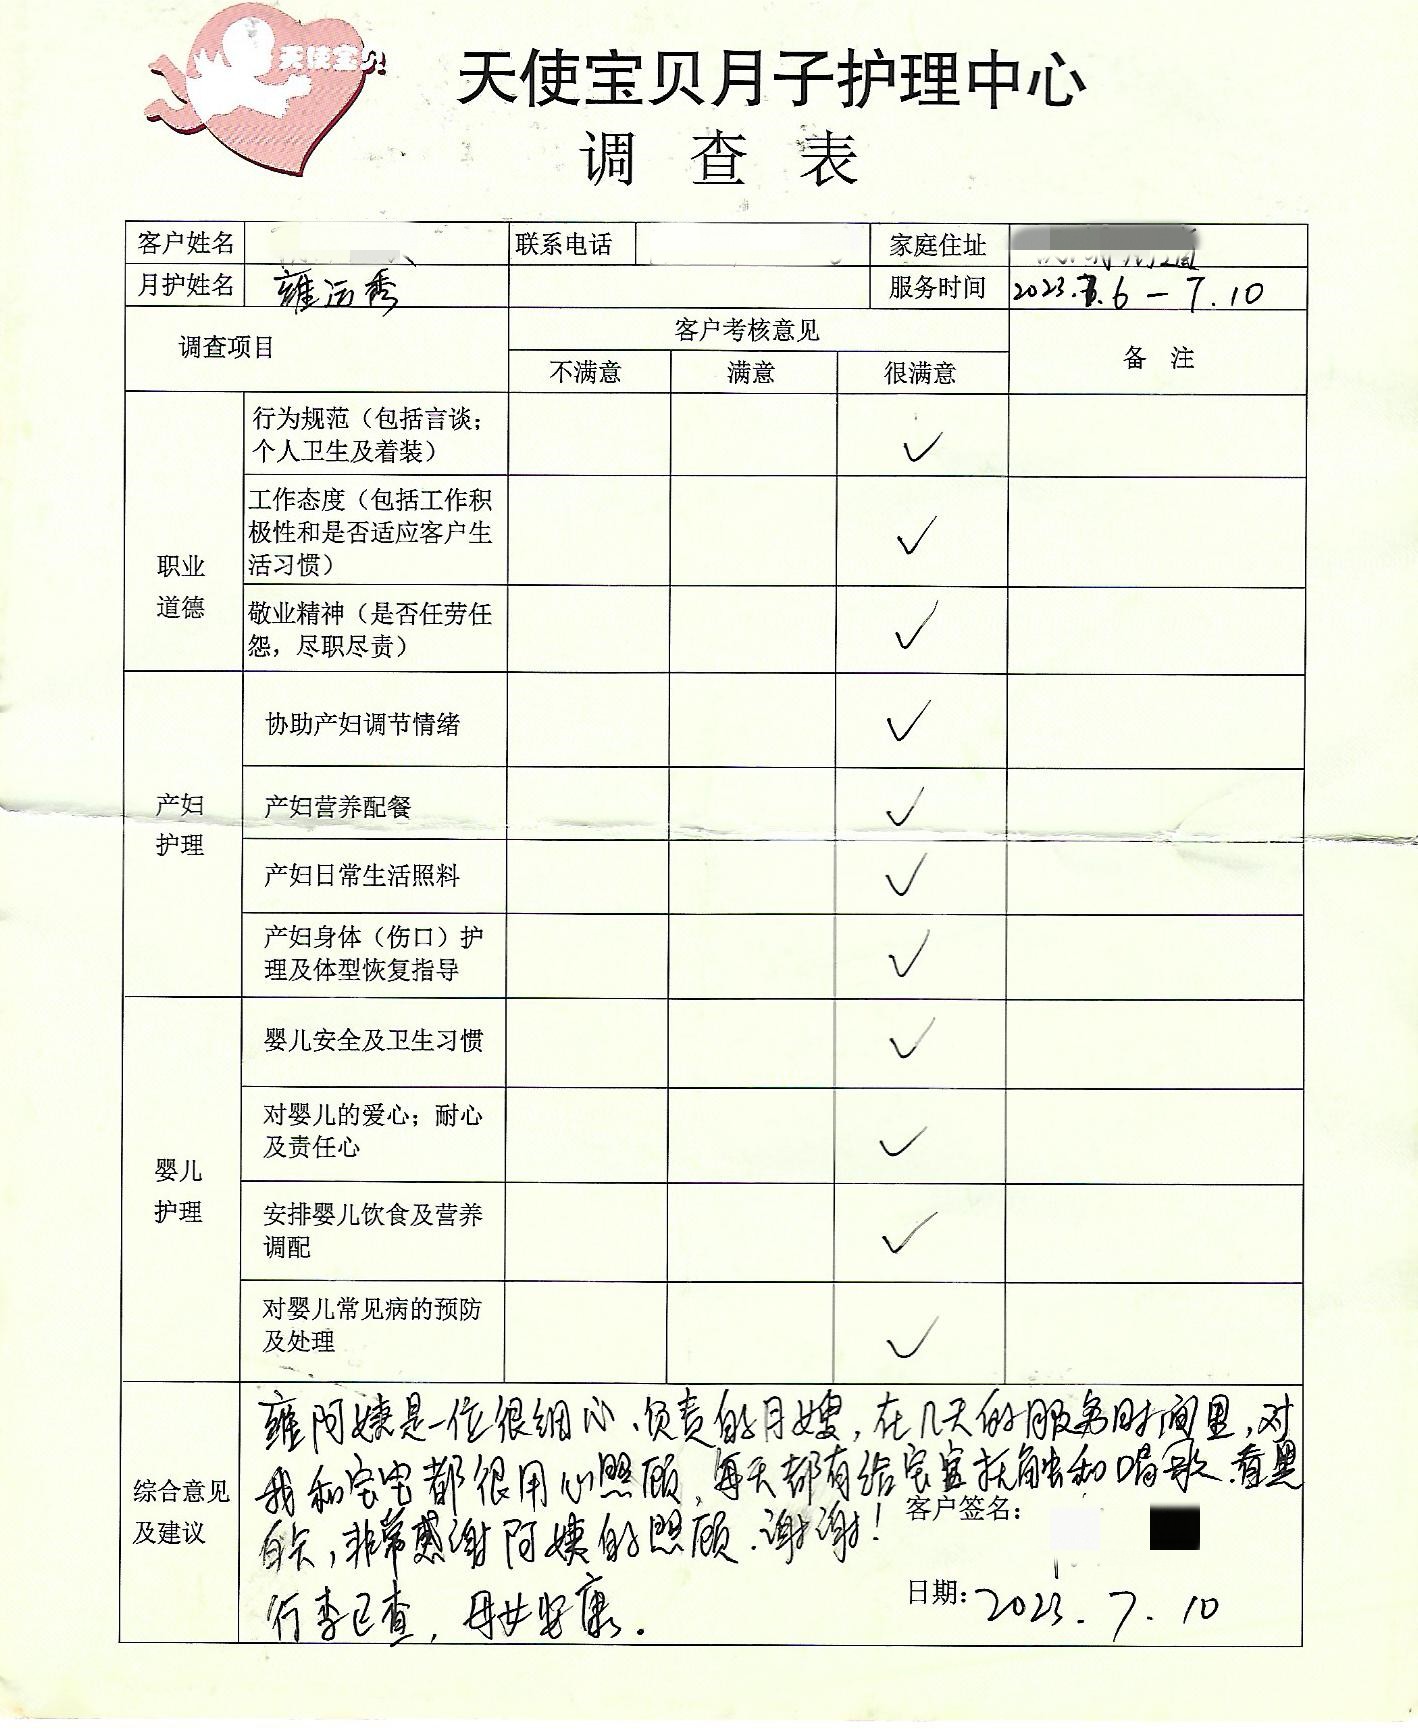 天使宝贝
天使宝贝月子护理中心
调 查 表
客户姓名 联系电话 家庭住址
月护姓名 雍运秀 服务时间 2023.7.6-7.10
调查项目 客户考核意见 备 注
不满意 满意 很满意
职业
道德
行为规范（包括言谈；
个人卫生及着装）
✓
工作态度（包括工作积
极性和是否适应客户生
活习惯）
✓
敬业精神（是否任劳任
怨，尽职尽责）
✓
产妇
护理
协助产妇调节情绪 ✓
产妇营养配餐 ✓
产妇日常生活照料 ✓
产妇身体（伤口）护
理及体型恢复指导
✓
婴儿
护理
婴儿安全及卫生习惯 ✓
对婴儿的爱心；耐心
及责任心
✓
安排婴儿饮食及营养
调配
✓
对婴儿常见病的预防
及处理
✓
综合意见
及建议
雍阿姨是一位很细心、负责的月嫂，在几天的服务时间里，对
我和宝宝都很用心照顾，每天都有给宝宝抚触和唱歌、看黑
白卡，非常感谢阿姨的照顾.谢谢！
行李已查，母女安康.
客户签名：
日期：2023.7.10